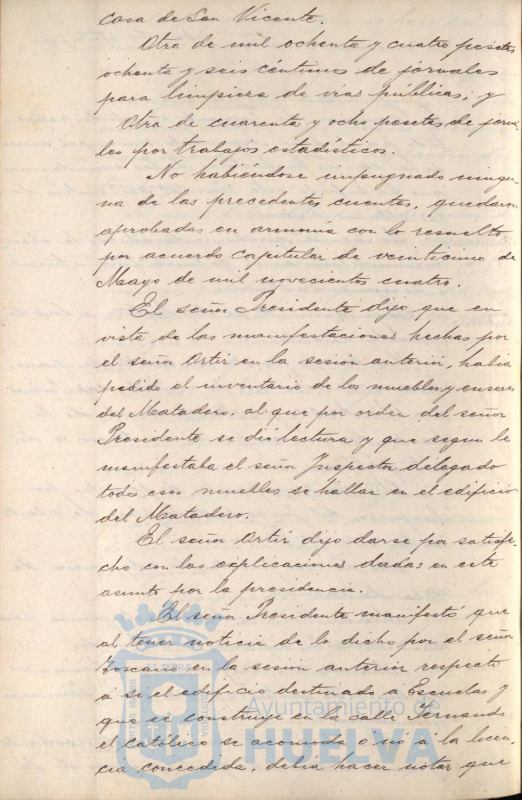 casa de San Vicente.
Otra de mil ochenta y cuatro pesetas
ochenta y seis céntimos de jornales
para limpieza de vias públicas; y
Otra de cuarenta y ocho pesetas de jorna-
les por trabajos estadísticos.
No habiéndose impugnado ningu-
na de las precedentes cuentas, quedaron
aprobadas en armonía con lo resuelto
por acuerdo capitular de veinticinco de
Mayo de mil novecientos cuatro.
El señor Presidente dijo que en
vista de las manifestaciones hechas por
el señor Ortiz en la sesión anterior, habia
pedido el inventario de los muebles y enseres
del Matadero, al que por orden del señor
Presidente se dió lectura y que segun le
manifestaba el señor Inspector delegado
todos esos muebles se hallan en el edificio
del Matadero.
El señor Ortiz dijo darse por satisfe-
cho con las explicaciones dadas en este
asunto por la presidencia.
El señor Presidente manifestó que
al tener noticia de lo dicho por el señor
Toscano en la sesión anterior respecto
á si el edificio destinado a Escuelas y
que se construye en la calle Fernando
el Católico se acomoda ó no á la licen-
cia concedida, debia hacer notar que
Ayuntamiento de
HUELVA